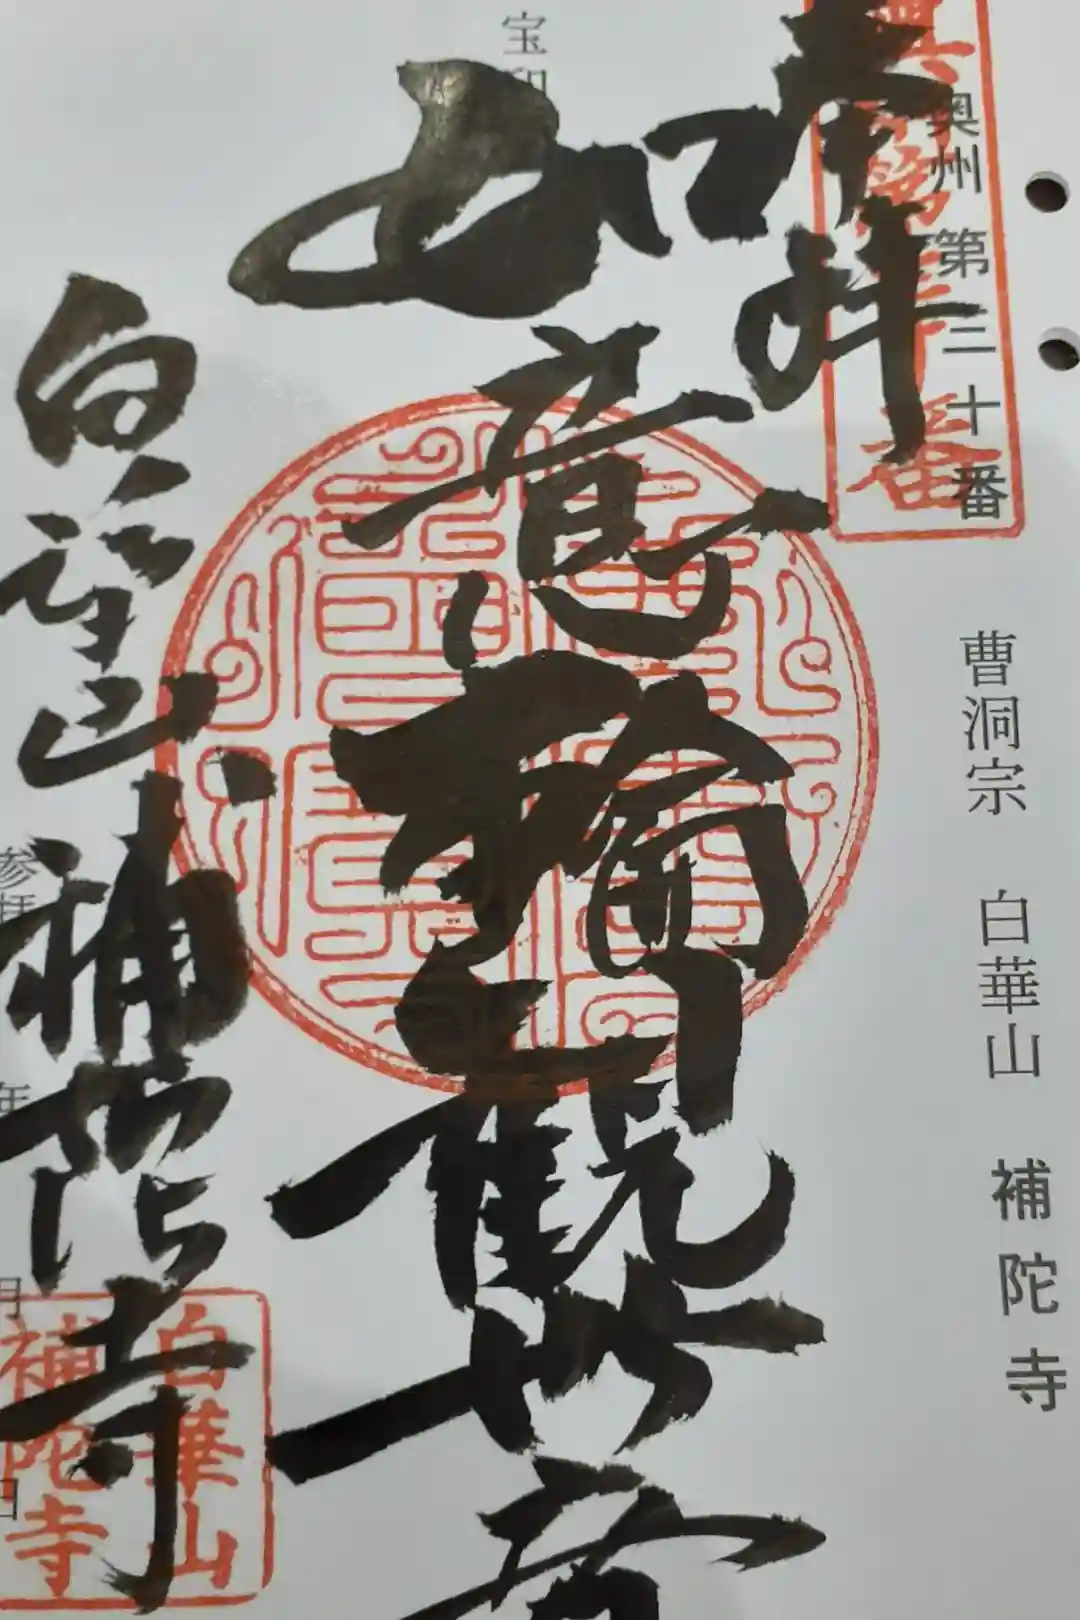 奥州第三十番
曹洞宗 白華山 補陀寺
奉拝
如意輪観世音
宝印
白華山 補陀寺
白華山
補陀寺
参拝
年
月
日